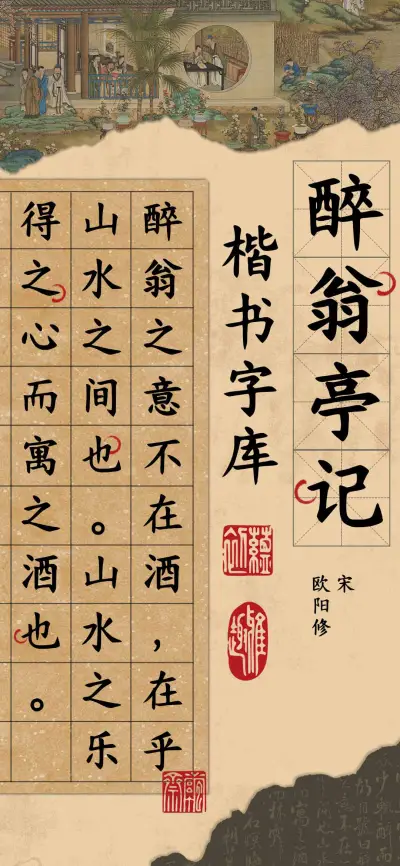 醉翁亭记
楷书字库
宋
欧阳修
醉翁之意不在酒，在乎
山水之间也。山水之乐
得之心而寓之酒也。